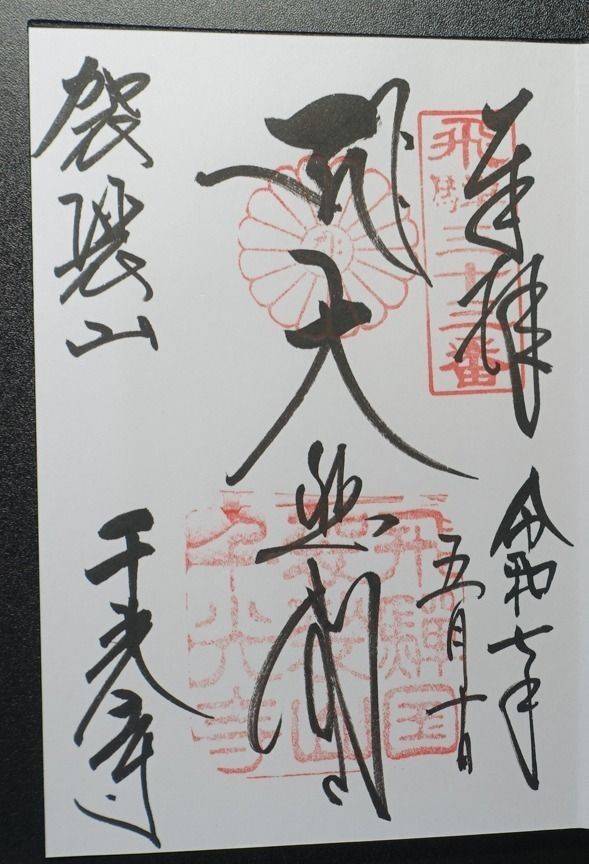 奉拝
飛驒三十三番
令和七年
五月十日
大悲閣
飛驒国
袈裟山
千光寺
袈裟山
千光寺